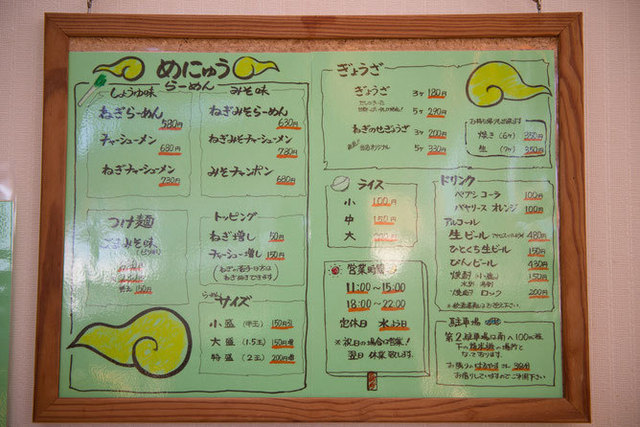 めにゅう
らーめん
しょうゆ味
ねぎらーめん
580円
チャーシューメン
680円
ねぎチャーシューメン
730円
みそ味
ねぎみそらーめん
630円
ねぎみそチャーシューメン
780円
みそチャンポン
680円
つけ麺
ごまみそ味
(ピリ辛)
トッピング
ねぎ増し 50円
チャーシュー増し 150円
らーめん
サイズ
小盛 (半玉) 150円引
大盛 (1.5玉) 150円増
特盛 (2玉) 200円増
ぎょうざ
ぎょうざ 3ケ 180円
5ケ 290円
ねぎのせぎょうざ 3ケ 200円
5ケ 330円
焼き (6ケ) 350円
生 (7ケ) 350円
ライス
小 100円
中 150円
大
営業時間
11:00〜15:00
18:00〜22:00
定休日 水よう日
※祝日の場合は営業!
翌日休業致します。
ドリンク
ペプシコーラ 100円
バヤリースオレンジ 100円
アルコール
生ビール 480円
ひとくち生ビール 150円
びんビール 430円
焼酎 150円
焼酎 ロック 200円
駐車場
第2駐車場は南へ100m程
下の精米機の場所と
なっております。